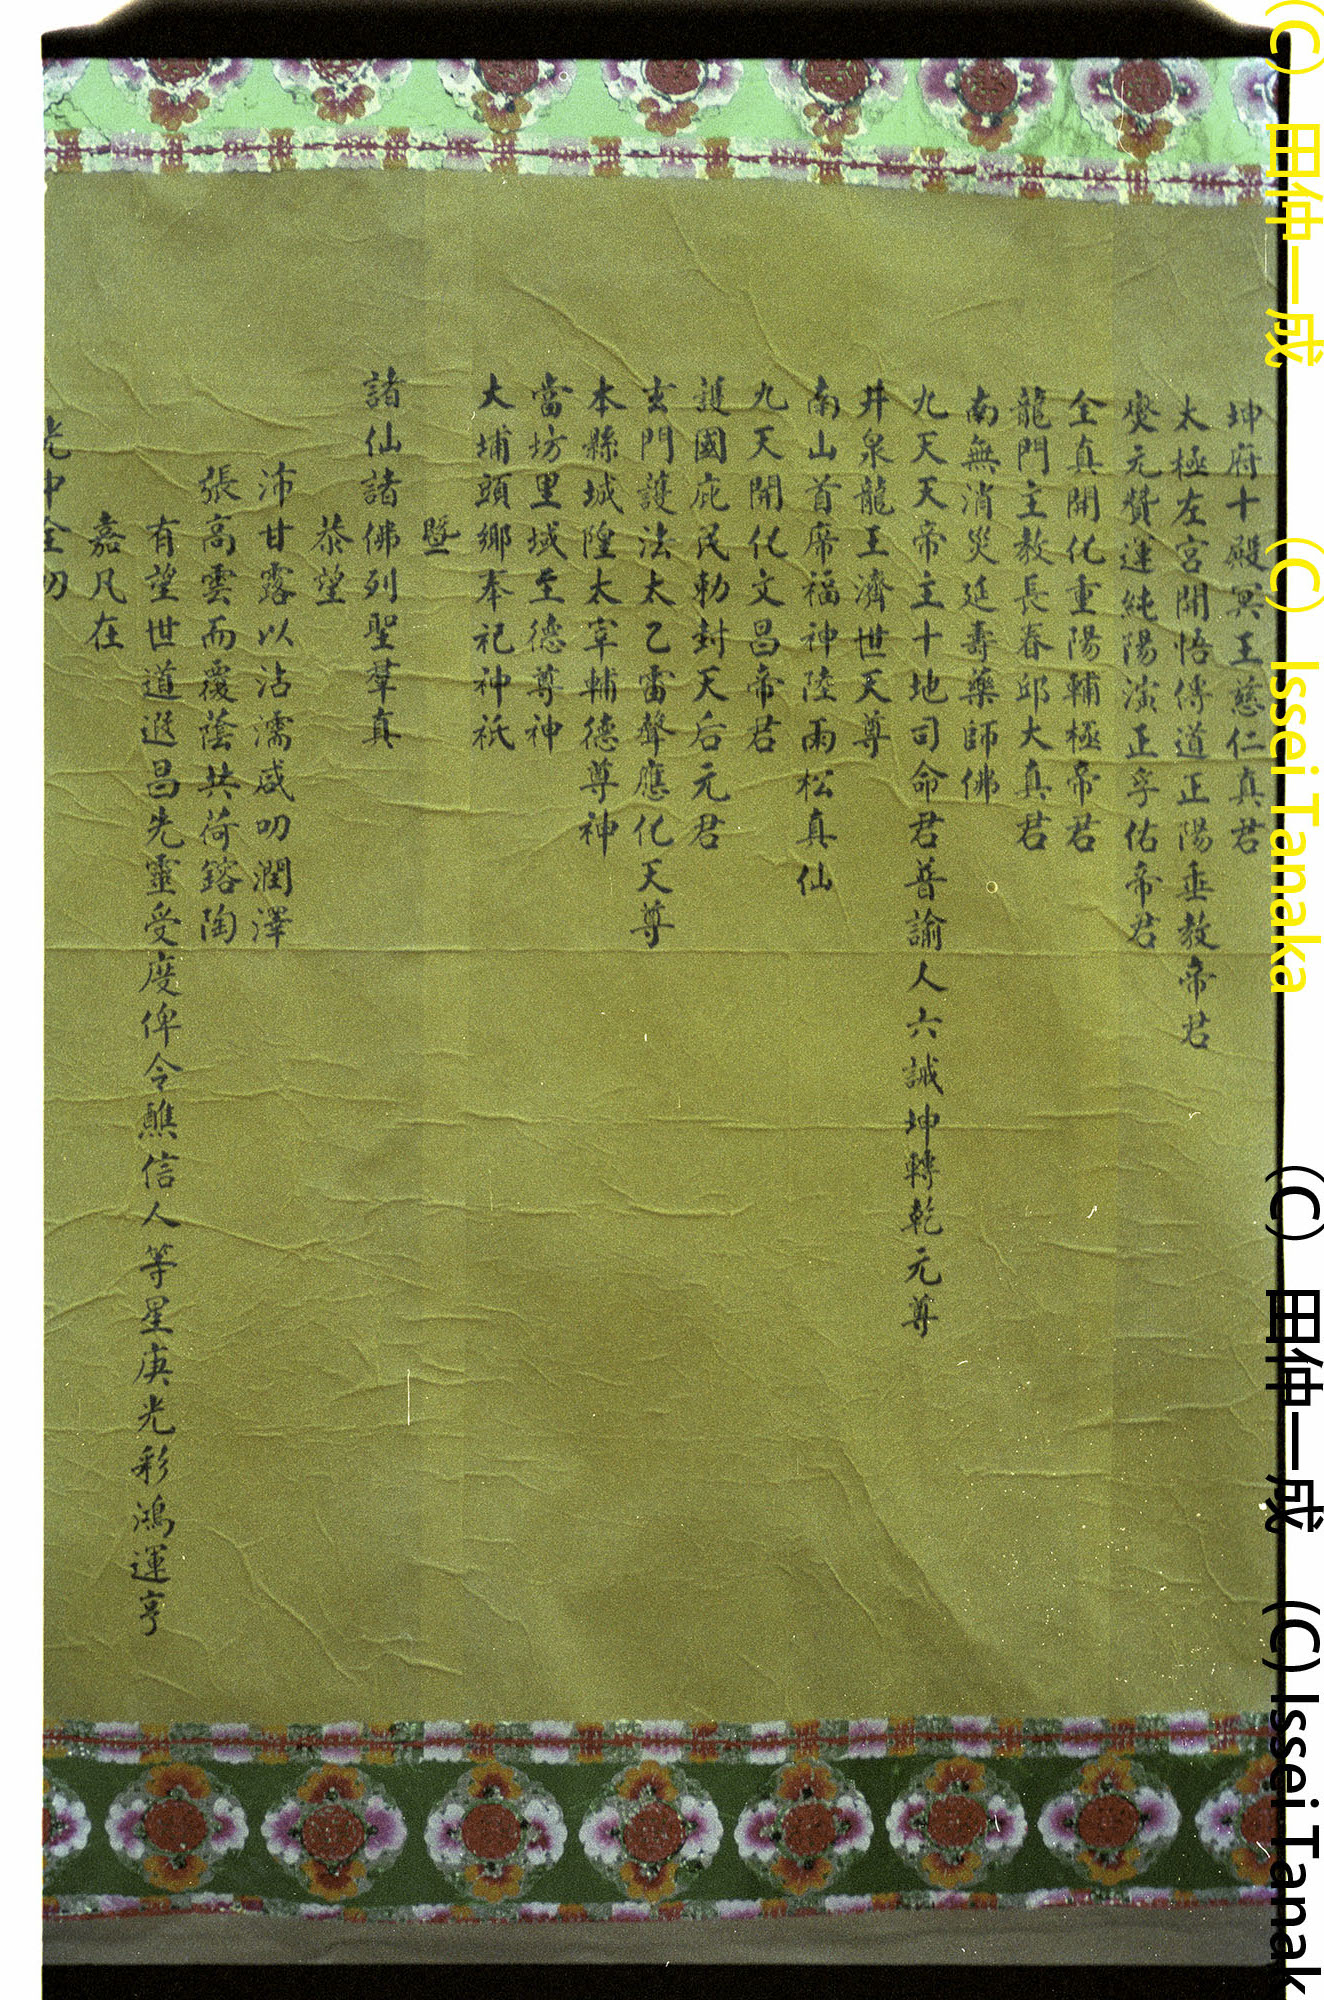 坤府十殿冥王慈仁真君
太極左宮開悟傳道正陽垂教帝君
爕元贊運純陽演正孚佑帝君
全真開化重陽輔極帝君
龍門主教長春邱大真君
南無消災延壽藥師佛
九天天帝主十地司命君普諭人六誡坤轉乾元尊
井泉龍王濟世天尊
南山首席福神陸雨松真仙
九天開化文昌帝君
護國庇民勅封天后元君
玄門護法太乙雷聲應化天尊
本縣城隍太宰輔德尊神
當坊里域至德尊神
大埔頭鄉奉祀神祇
暨
諸仙諸佛列聖羣真
恭望
沛甘露以沾濡咸叨潤澤
張高雲而覆蔭共荷鎔陶
有望世道遐昌先靈受度俾令醮信人等星庚光彩鴻運亨
嘉凡在
光中全叨
(C) 田仲一成 (C) Issei Tanaka
(C) 田仲一成 (C) Issei Tanak